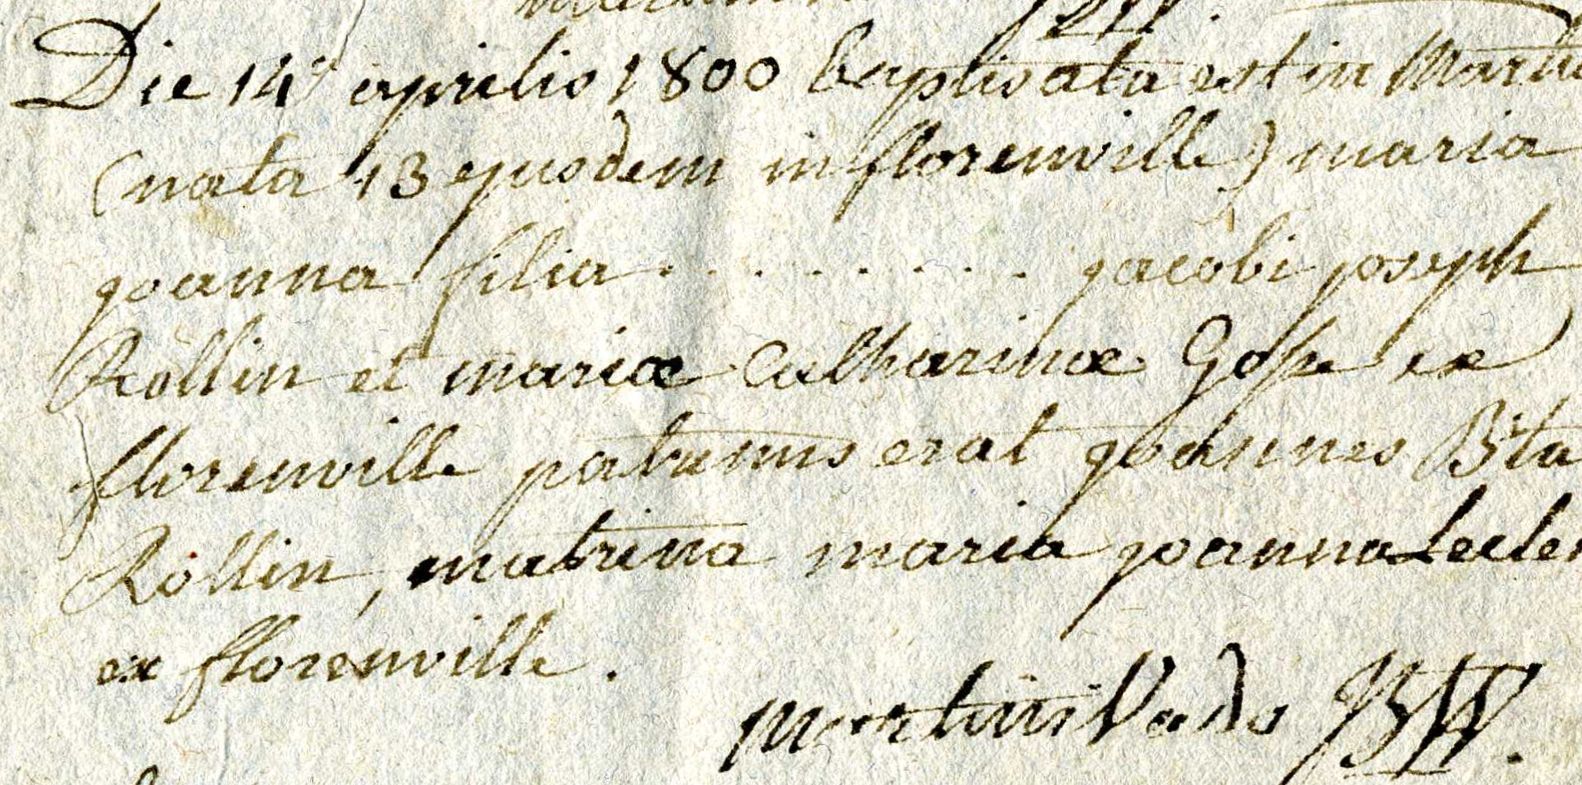 Die 14ª aprilis 1800 baptisata est in Martin
(nata 13 ejusdem in florenville) maria
joanna filia . . . . . . . . . jacobi joseph
Rollin et mariæ Catharinæ Gosse ex
florenville patrinus erat joannes Bta
Rollin, matrina maria joanna Lecler
ex florenville.
Martini Vado